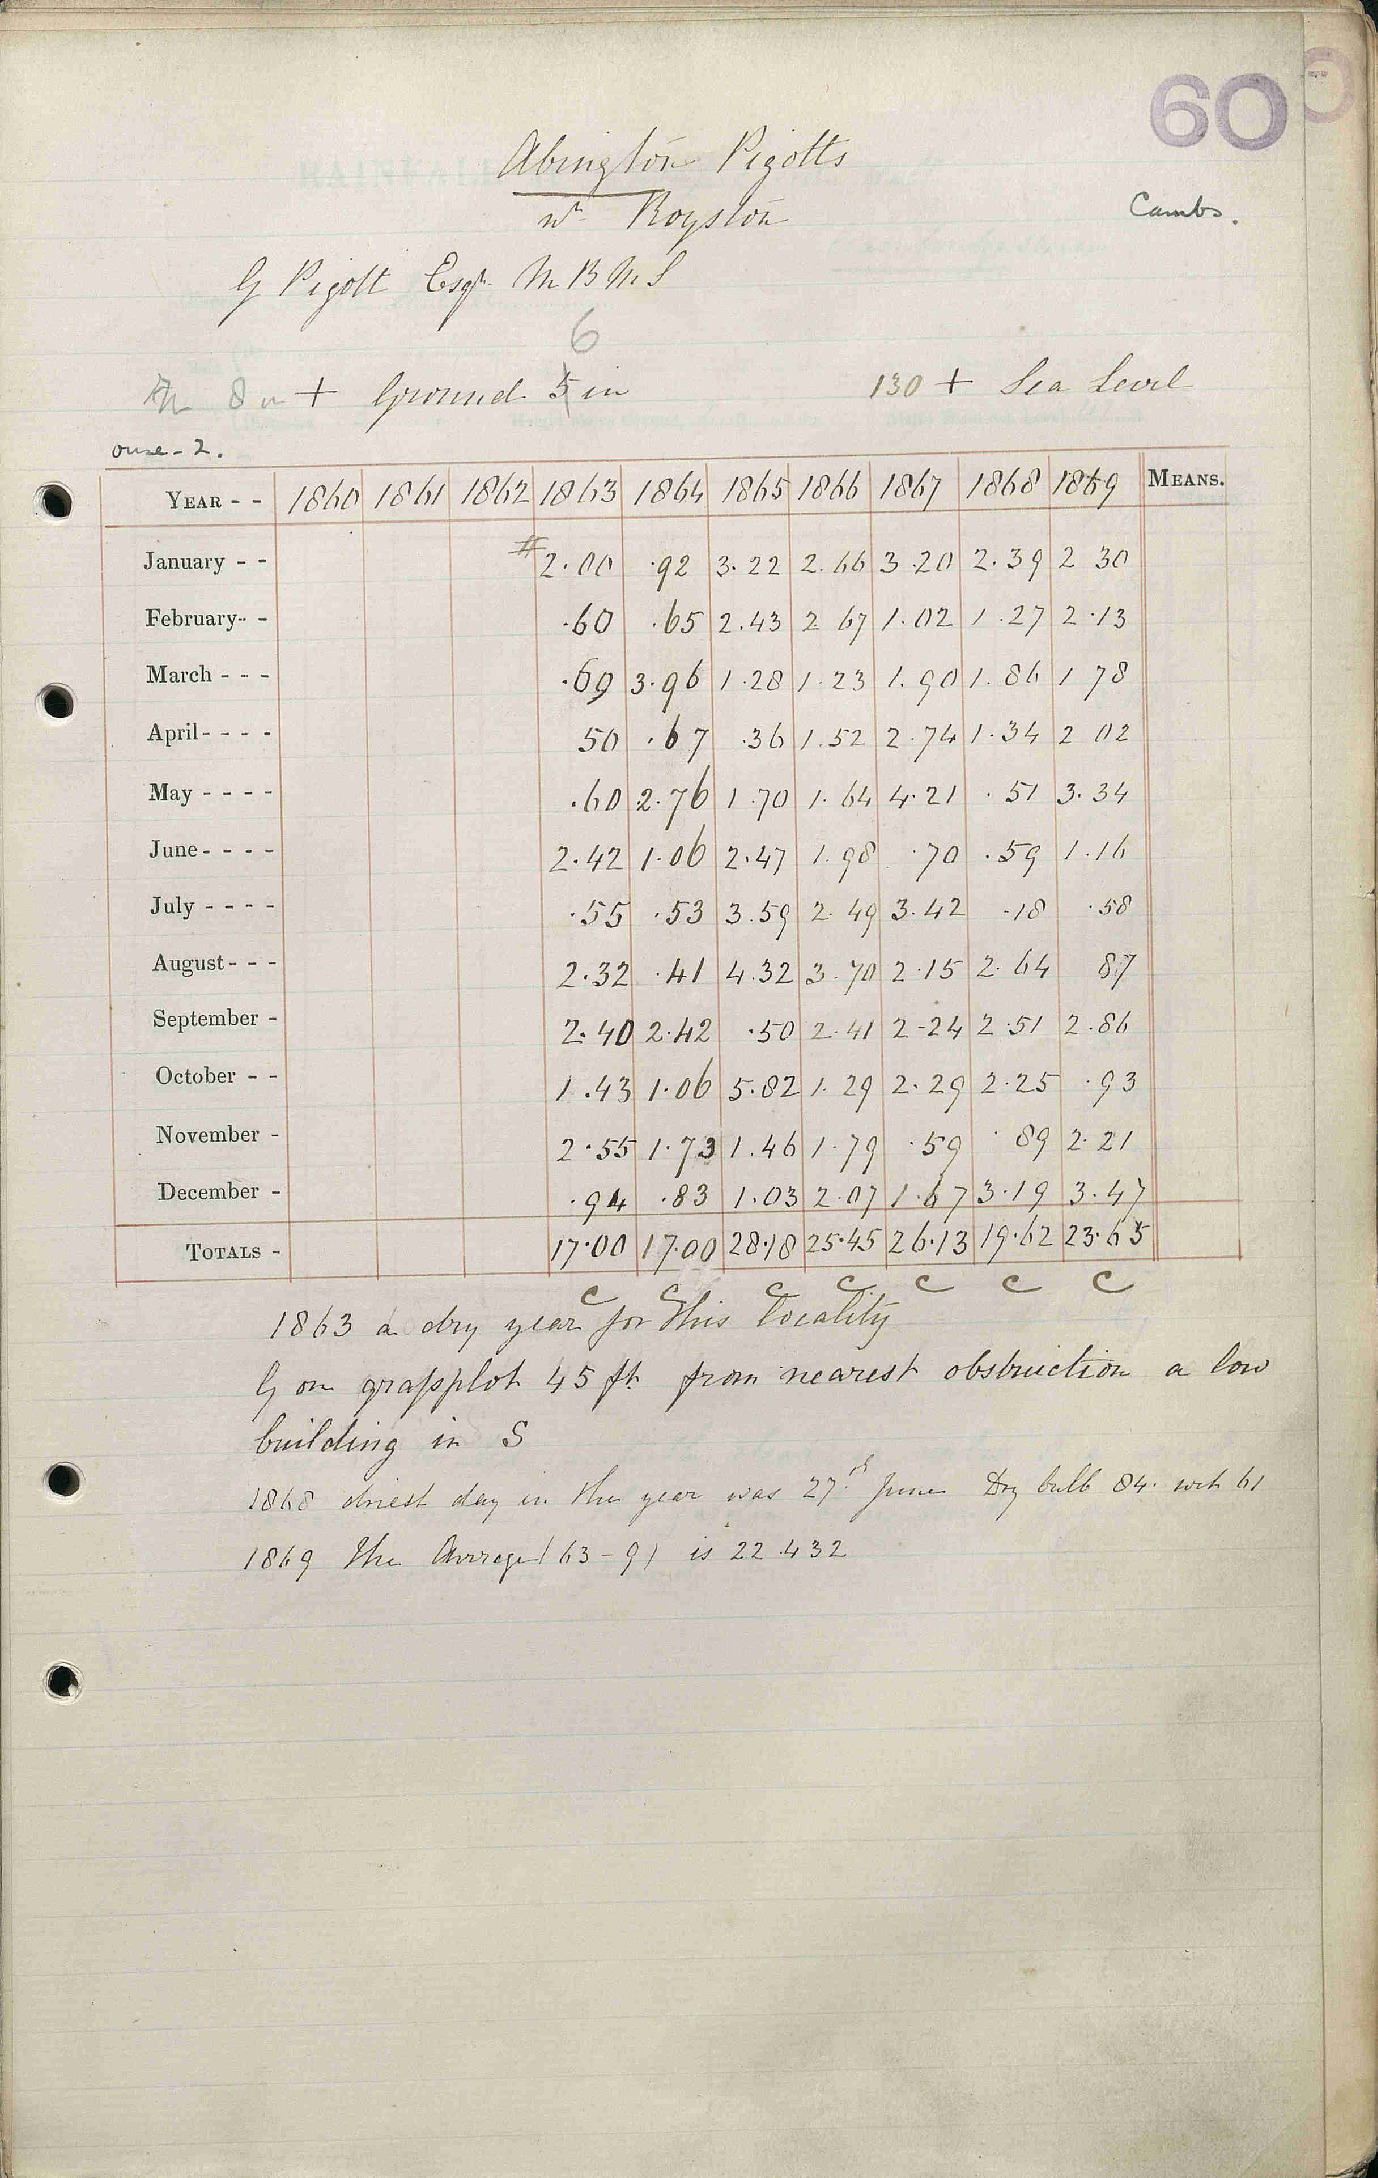 60
Abington Pigotts
nr Royston
Cambs.
G Pigott Esqr M B M S
6
8 in + Ground 5 in 130 + Sea Level
ouse - 2.
YEAR - - 1860 1861 1862 1863 1864 1865 1866 1867 1868 1869 MEANS.
January - - # 2.00 .92 3.22 2.66 3.20 2.39 2 30
February - - .60 .65 2.43 2 67 1.02 1.27 2.13
March - - - .69 3.96 1.28 1.23 1.90 1.86 1 78
April - - - - 50 .67 .36 1.52 2.74 1.34 2 02
May - - - - .60 2.76 1.70 1.64 4.21 .51 3.34
June - - - - 2.42 1.06 2.47 1.98 .70 .59 1.16
July - - - - .55 .53 3.59 2.49 3.42 .18 .58
August - - - 2.32 .41 4.32 3.70 2.15 2.64 87
September - 2.40 2.42 .50 2.41 2.24 2.51 2.86
October - - 1.43 1.06 5.82 1.29 2.29 2.25 .93
November - 2.55 1.73 1.46 1.79 .59 .89 2.21
December - .94 .83 1.03 2.07 1.67 3.19 3.47
TOTALS - 17.00 17.00 28.18 25.45 26.13 19.62 23.65
c c c c c c c
1863 a dry year for this locality
G on grassplot 45 ft from nearest obstruction a low
building in S
1868 driest day in the year was 27th June Dry bulb 84. wet 61
1869 the Average (63-9) is 22.432